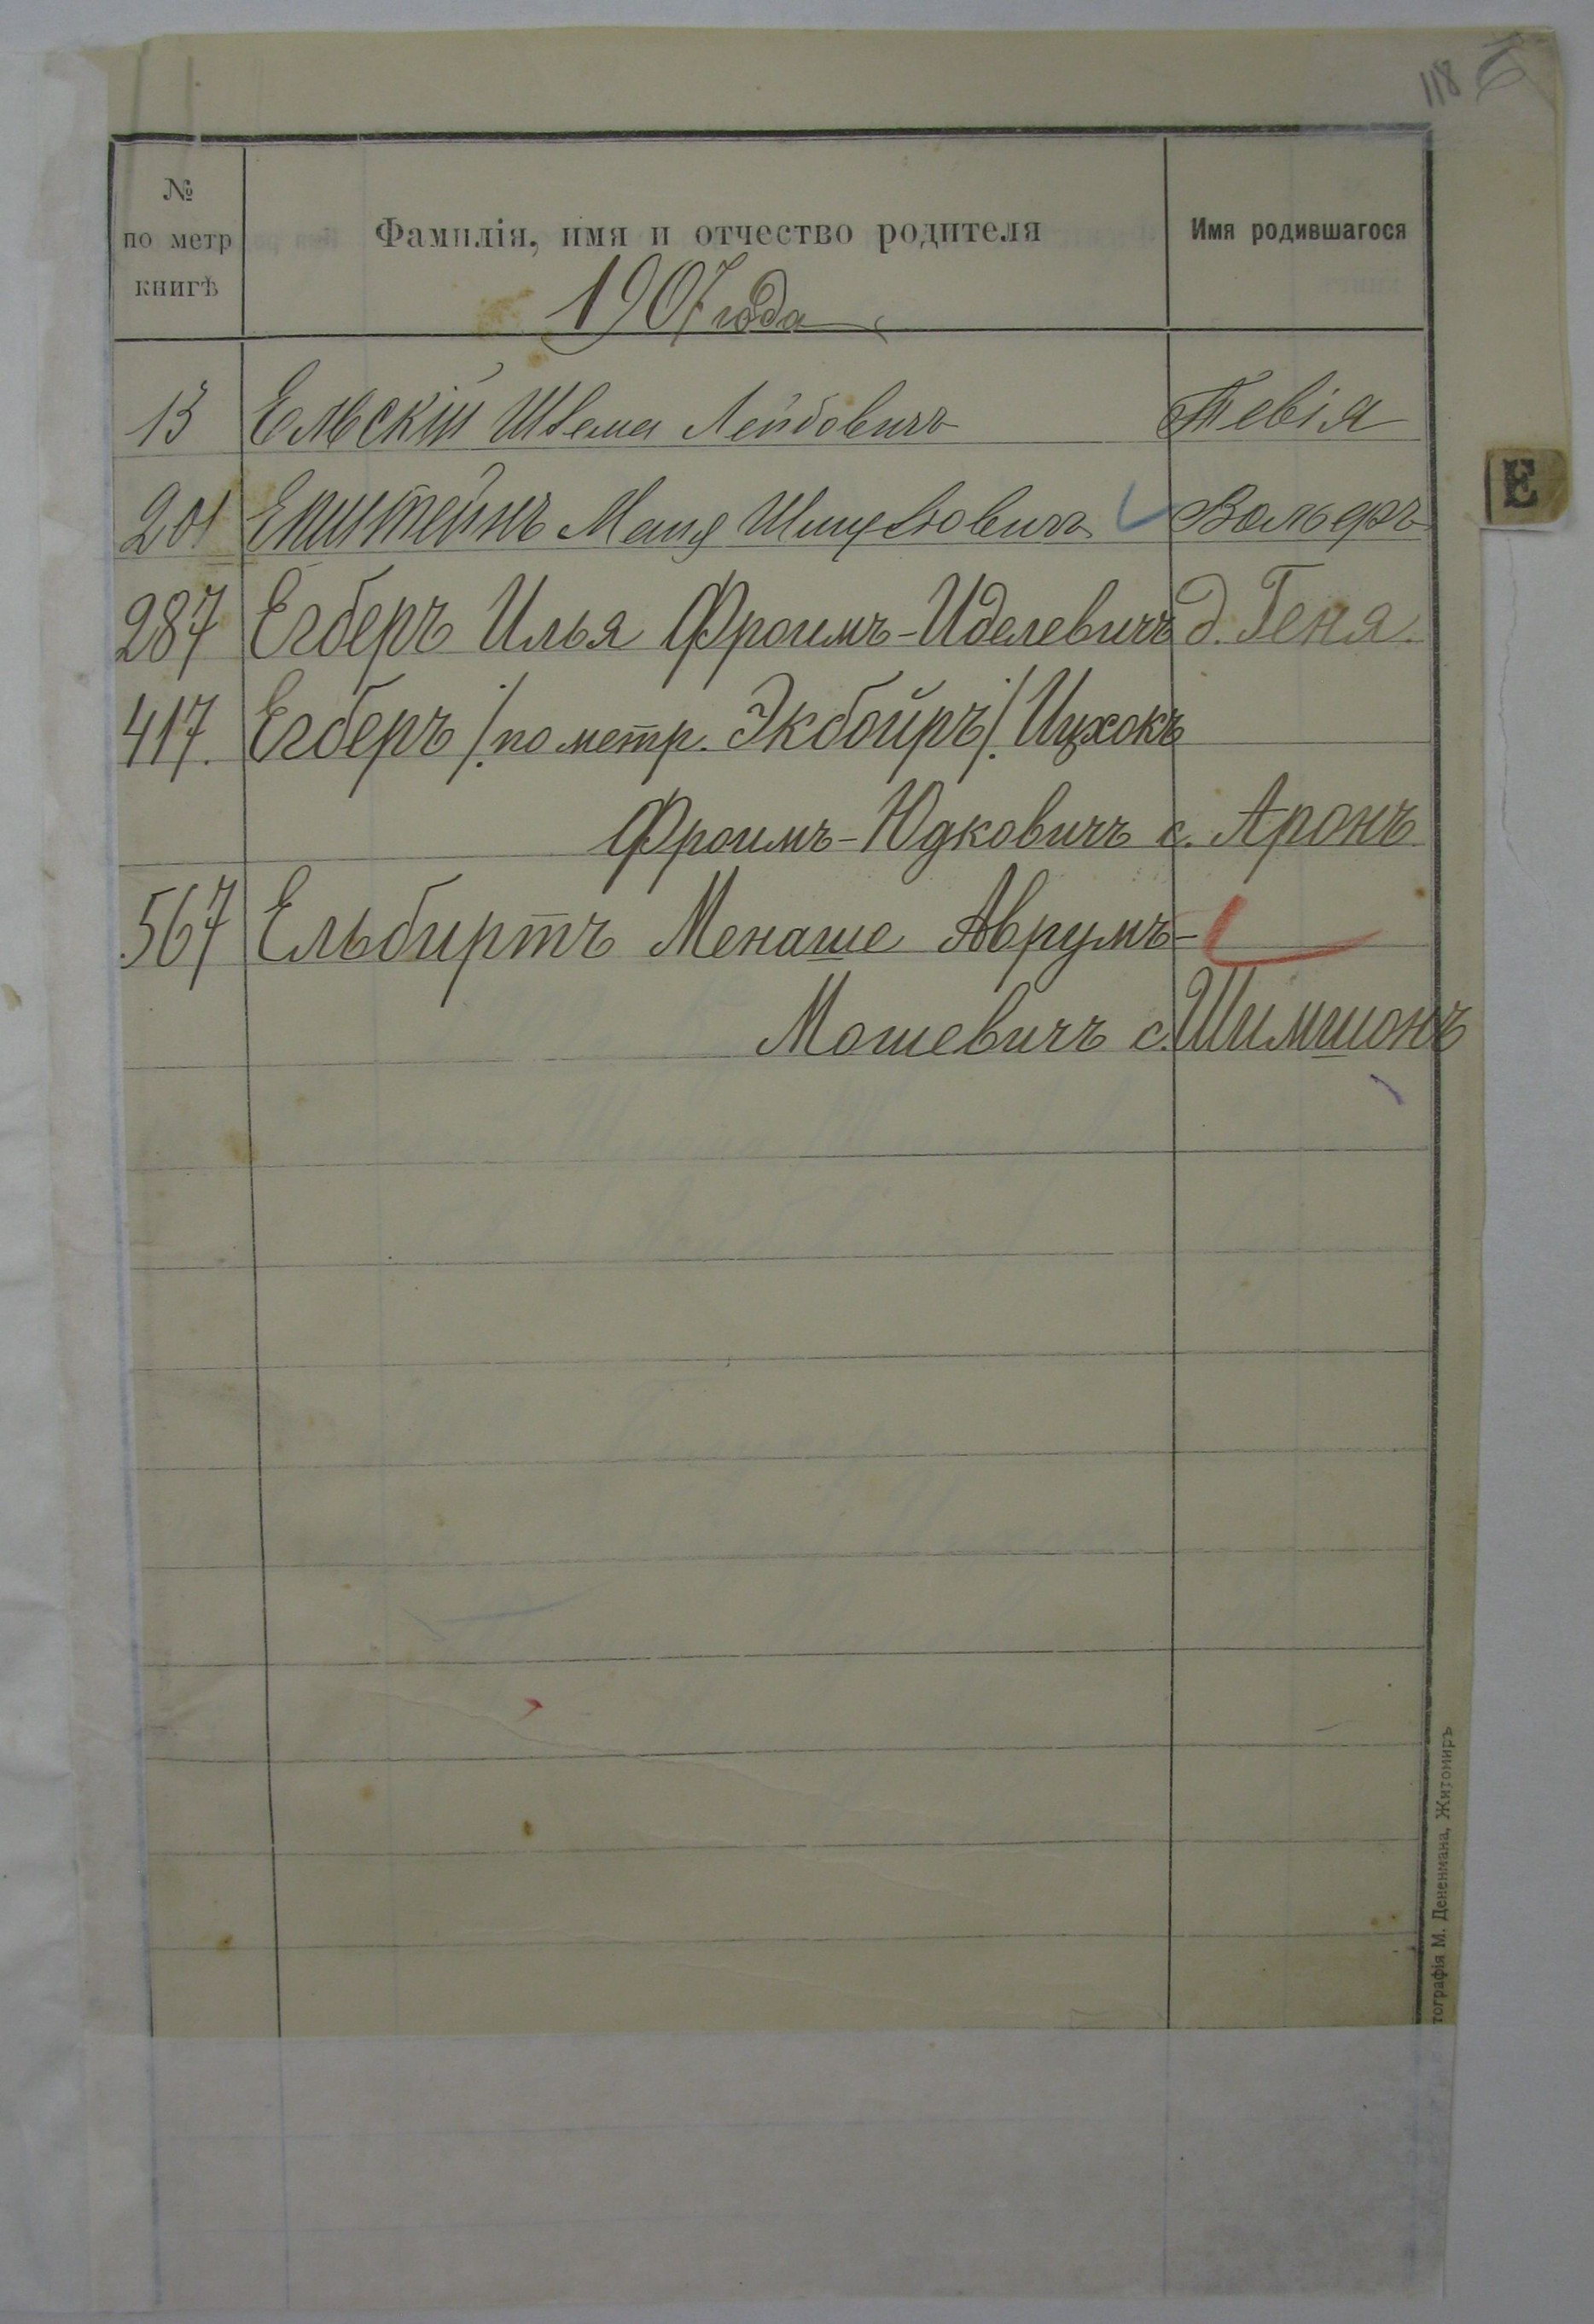 118
№
по метр
книгѣ
Фамилія, имя и отчество родителя
Имя родившагося
1907 года
13 Ельскій Шлема Лейбовичъ Тевія
201 Епштейнъ Шмулевичъ Вольфъ
287 Егберъ Илья Фроимъ-Иделевичъ д. Геня.
417. Егберъ /по метр. Экбойръ/ Ицхокъ
Фроимъ-Юдковичъ с. Аронъ
567 Ельбиртъ Менаше Аврумъ-
Мошевичъ с. Шимшонъ
Е
тографія М. Дененмана, Житомиръ